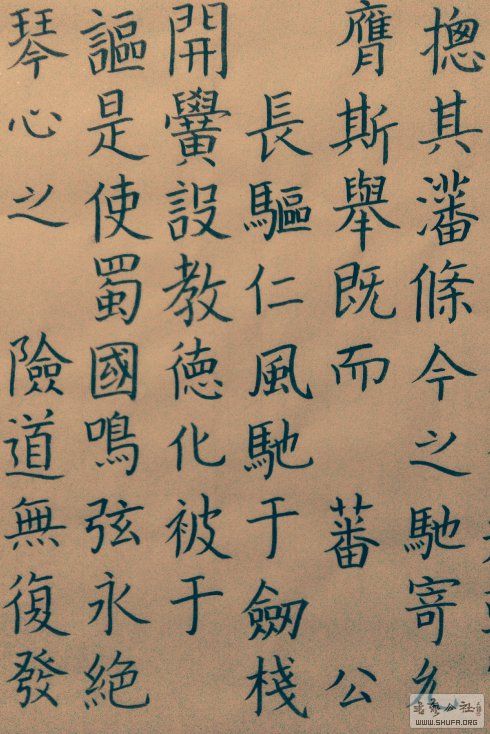 揔其藩條今之馳寄允
膺斯舉既而 蕃 公
長驅仁風馳于劒棧
開黌設教德化被于
謳是使蜀國鳴弦永絕
琴心之 險道無復發
WWW.SHUFA.ORG